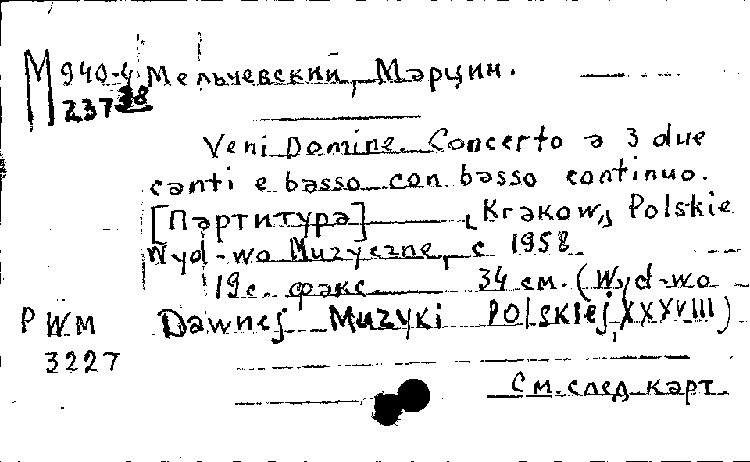 М 940-4 Мельчевский, Марцин.
237
Veni Domine. Concerto a 3 due
canti e basso con basso continuo.
[Партитура] Krakow, Polskie
Wyd-wo Muzyczne, c 1958.
19 с. факс. 34 см. (Wyd-wo
PWM Dawnej Muzyki Polskiej, XXXVIII)
3227
См. след. карт.